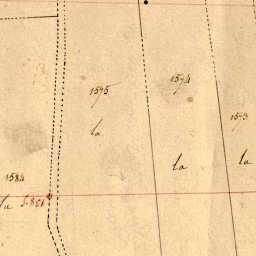 1574
1575
1573
la
la
la
1584
la